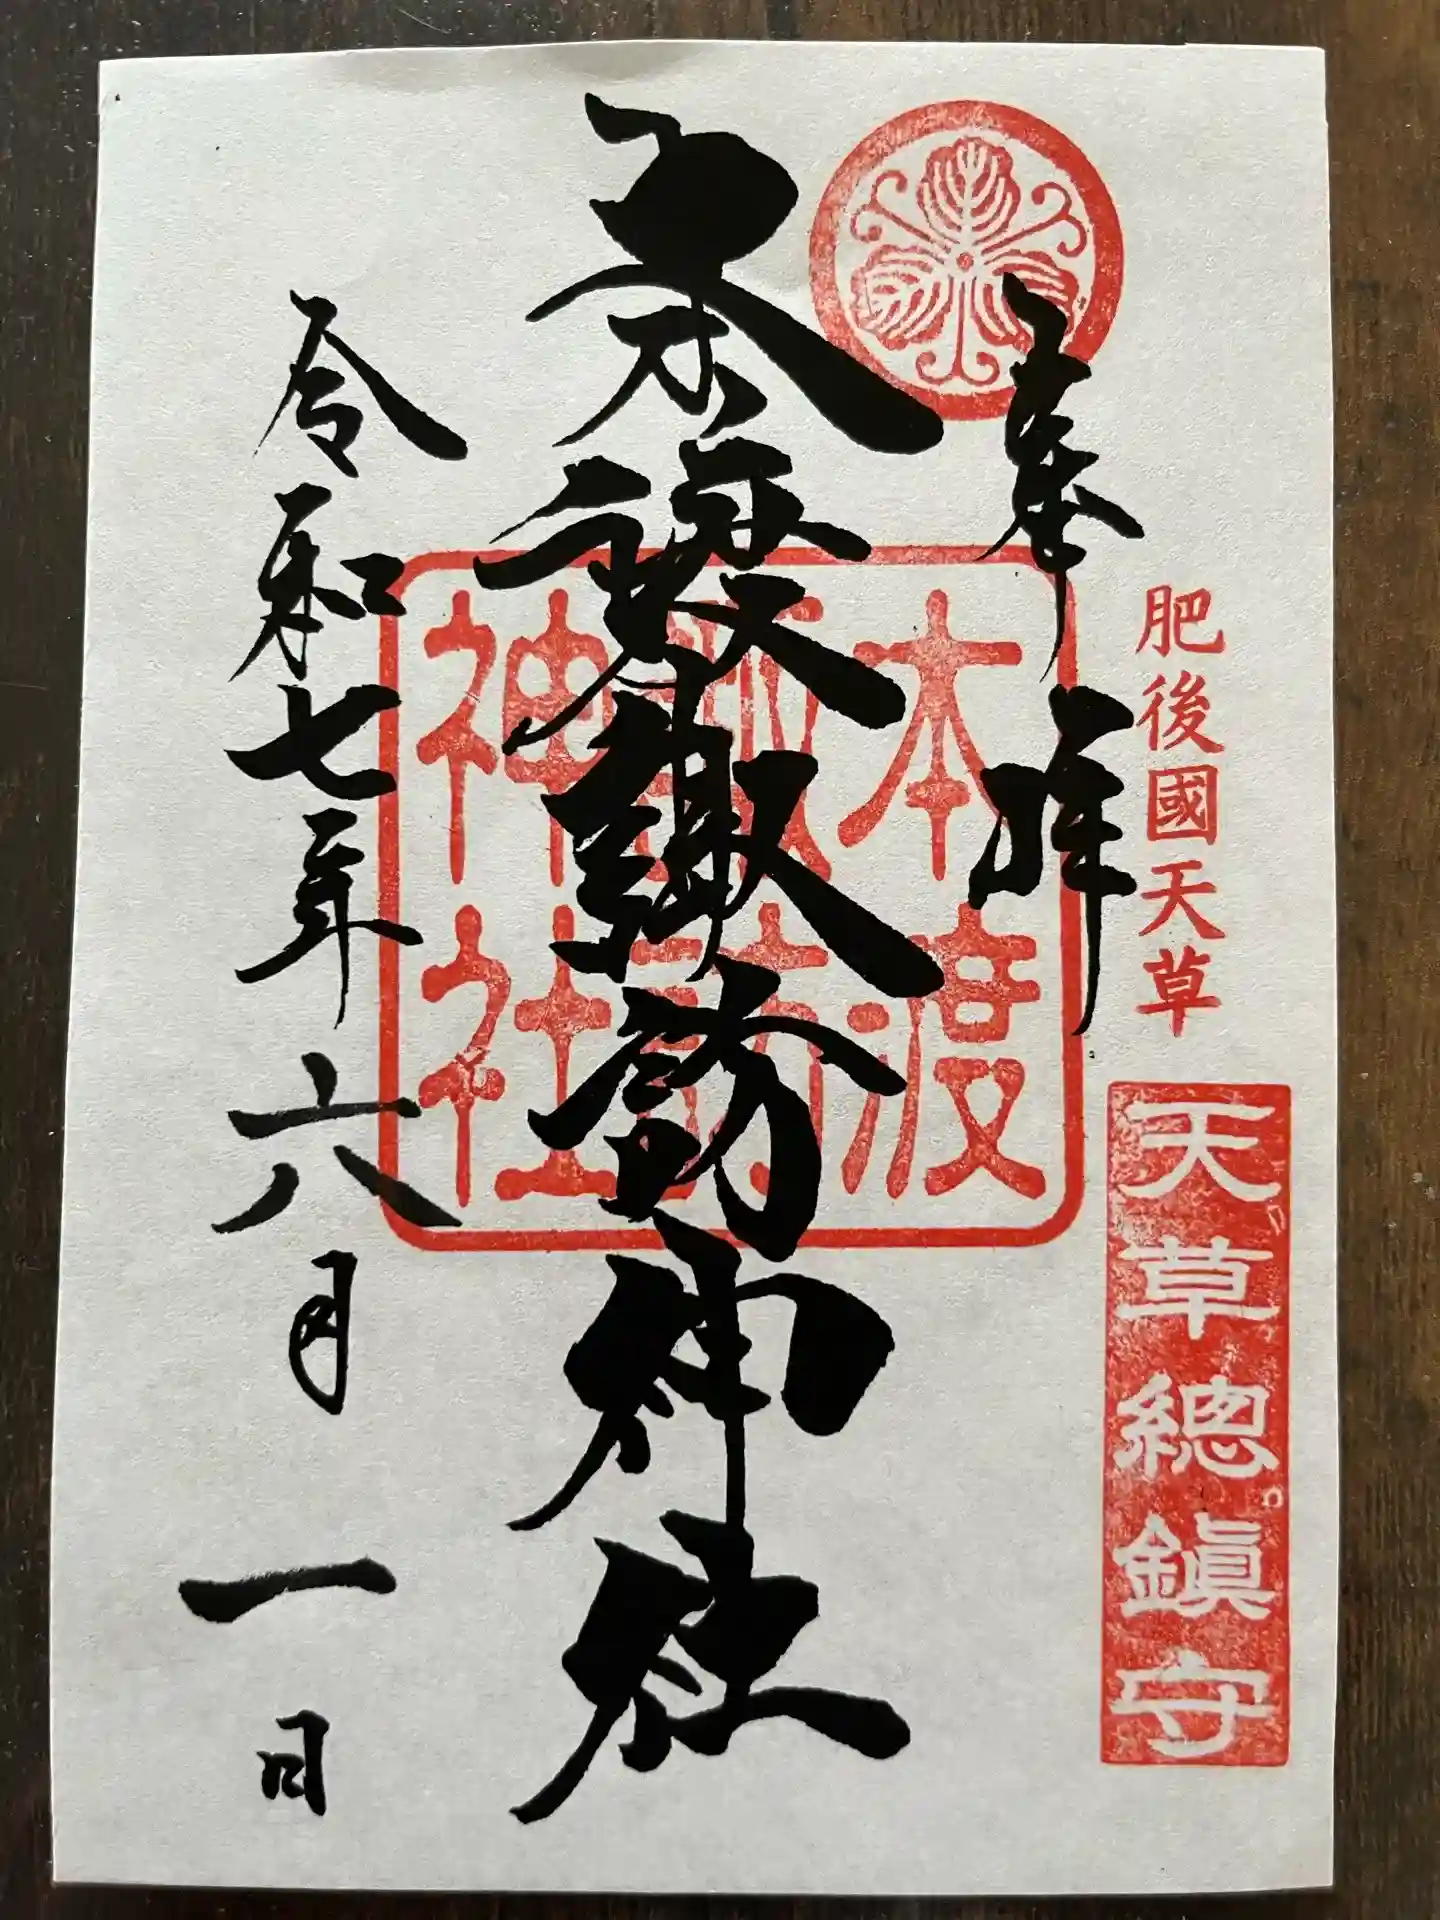 肥後國天草
天草總鎮守
奉拝
本渡諏訪神社
本渡
諏訪
神社
令和七年六月一日